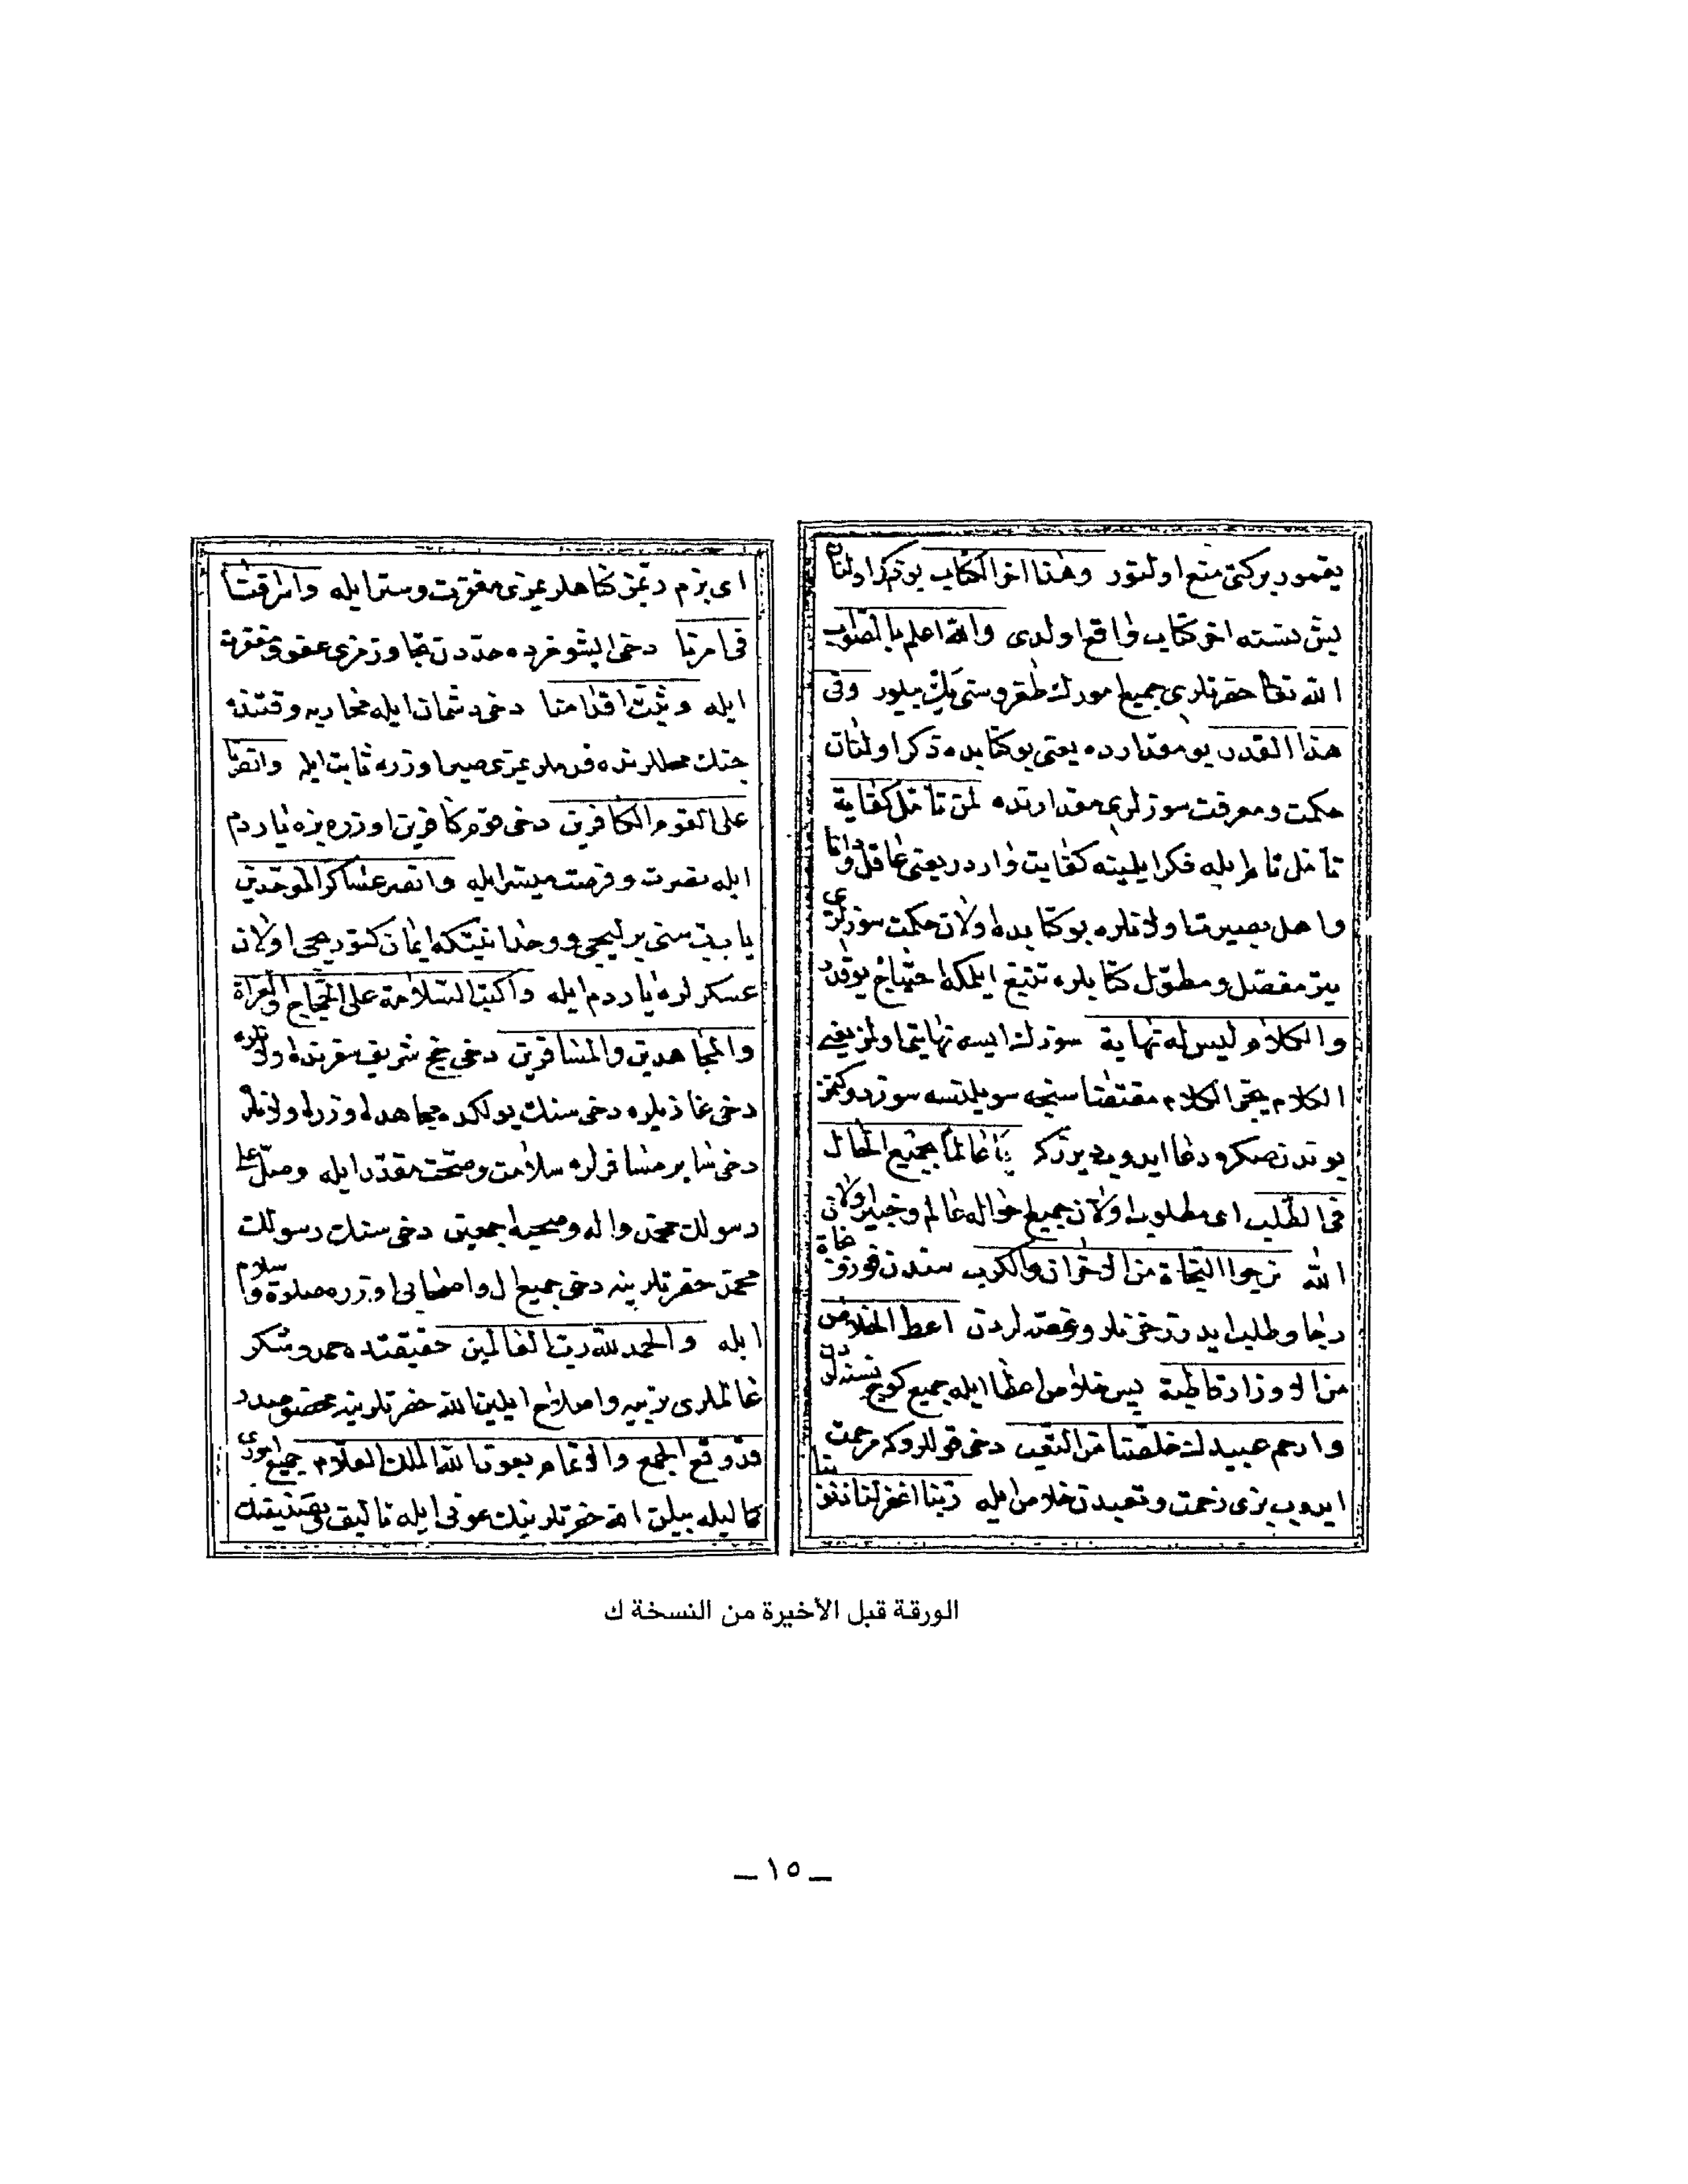 يغمور بركتى منع اولنور وهذا اخر الكتاب بو ذكر اولنان
بش نسنه اخر كتاب واقع اولدى والله اعلم بالصواب
الله تعالى حضرتلرى جميع امورك طغروسنى يك بيلور وفى
هذا القدر بو مقدارده يعنى بو كتابده ذكر اولنان
حكمت ومعرفت سوزلرى مقدارنده لمن تأمل كفاية
تأمل تام ايله فكر ايلينه كفايت واردر يعنى عاقل ودانا
واهل بصيرت اولانلره بو كتابده اولان حكمت سوزلرى
يتر مفصل ومطول كتابلره تتبع ايلمكه احتياج يوقدر
والكلام ليس له نهاية سوزك ايسه نهايتى اولمز يعنى
الكلام يجر الكلام مقتضاسنجه سويلنسه سوز دوكنمز
بوندنصكره دعا ايدوب ديرز كه يا عالما بجميع الحال
فى الطلب اى مطلوب اولان جميع احواله عالم وخبير اولان
الله نرجوا النجاة من الاحزان والكرب سندن قورتو
رجا وطلب ايدرز حزنلر وغصه لردن اعط الخلاص
من الاوزار قاطبة پس خلاص اعطا ايله جميع كوج نسنه لردن
وارحم عبيدك خلصنا من التعب دخى قوللروكه مرحمت
ايدوب بزى زحمت وتعبدن خلاص ايله ربنا اغفر لنا ذنوبنا
اى بزم ربمز كناهلريمزى مغفرت وستر ايله واسرافنا
فى امرنا دخى ايشومزده حددن تجاوزمزى عفو ومغفرت
ايله وثبت اقدامنا دخى دشمان ايله محاربه وقتنده
جنك محللرنده قدملريمزى صبر اوزره ثابت ايله وانصرنا
على القوم الكافرين دخى قوم كافرين اوزره بزه ياردم
ايله نصرت وفرصت ميسر ايله وانصر عساكر الموحدين
يا رب سنى برليجى ووحدانيتكه ايمان كتوريجى اولان
عسكرلره ياردم ايله واكتب السلامة على الحجاج والغزاة
والمجاهدين والمسافرين دخى حج شريف سفرنده اولانلره
دخى غازيلره دخى سنك يولكده مجاهده اوزره اولانلره
دخى سائر مسافرلره سلامت وصحت مقدر ايله وصل على
رسولك محمد واله وصحبه اجمعين دخى سنك رسولك
محمد حضرتلرينه دخى جميع ال واصحابى اوزره صلوة وسلام
ايله والحمد لله رب العالمين حقيقتده حمد وشكر
عالملرى تربيه واصلاح ايلين الله حضرتلرينه مخصوصدر
قد وقع الجمع والاتمام بعون الله الملك العلام جميع امورى
كماليله بيلن الله حضرتلرينك عونى ايله تأليف وتصنيفنك
الورقة قبل الأخيرة من النسخة ك
ـ ١٥ ـ